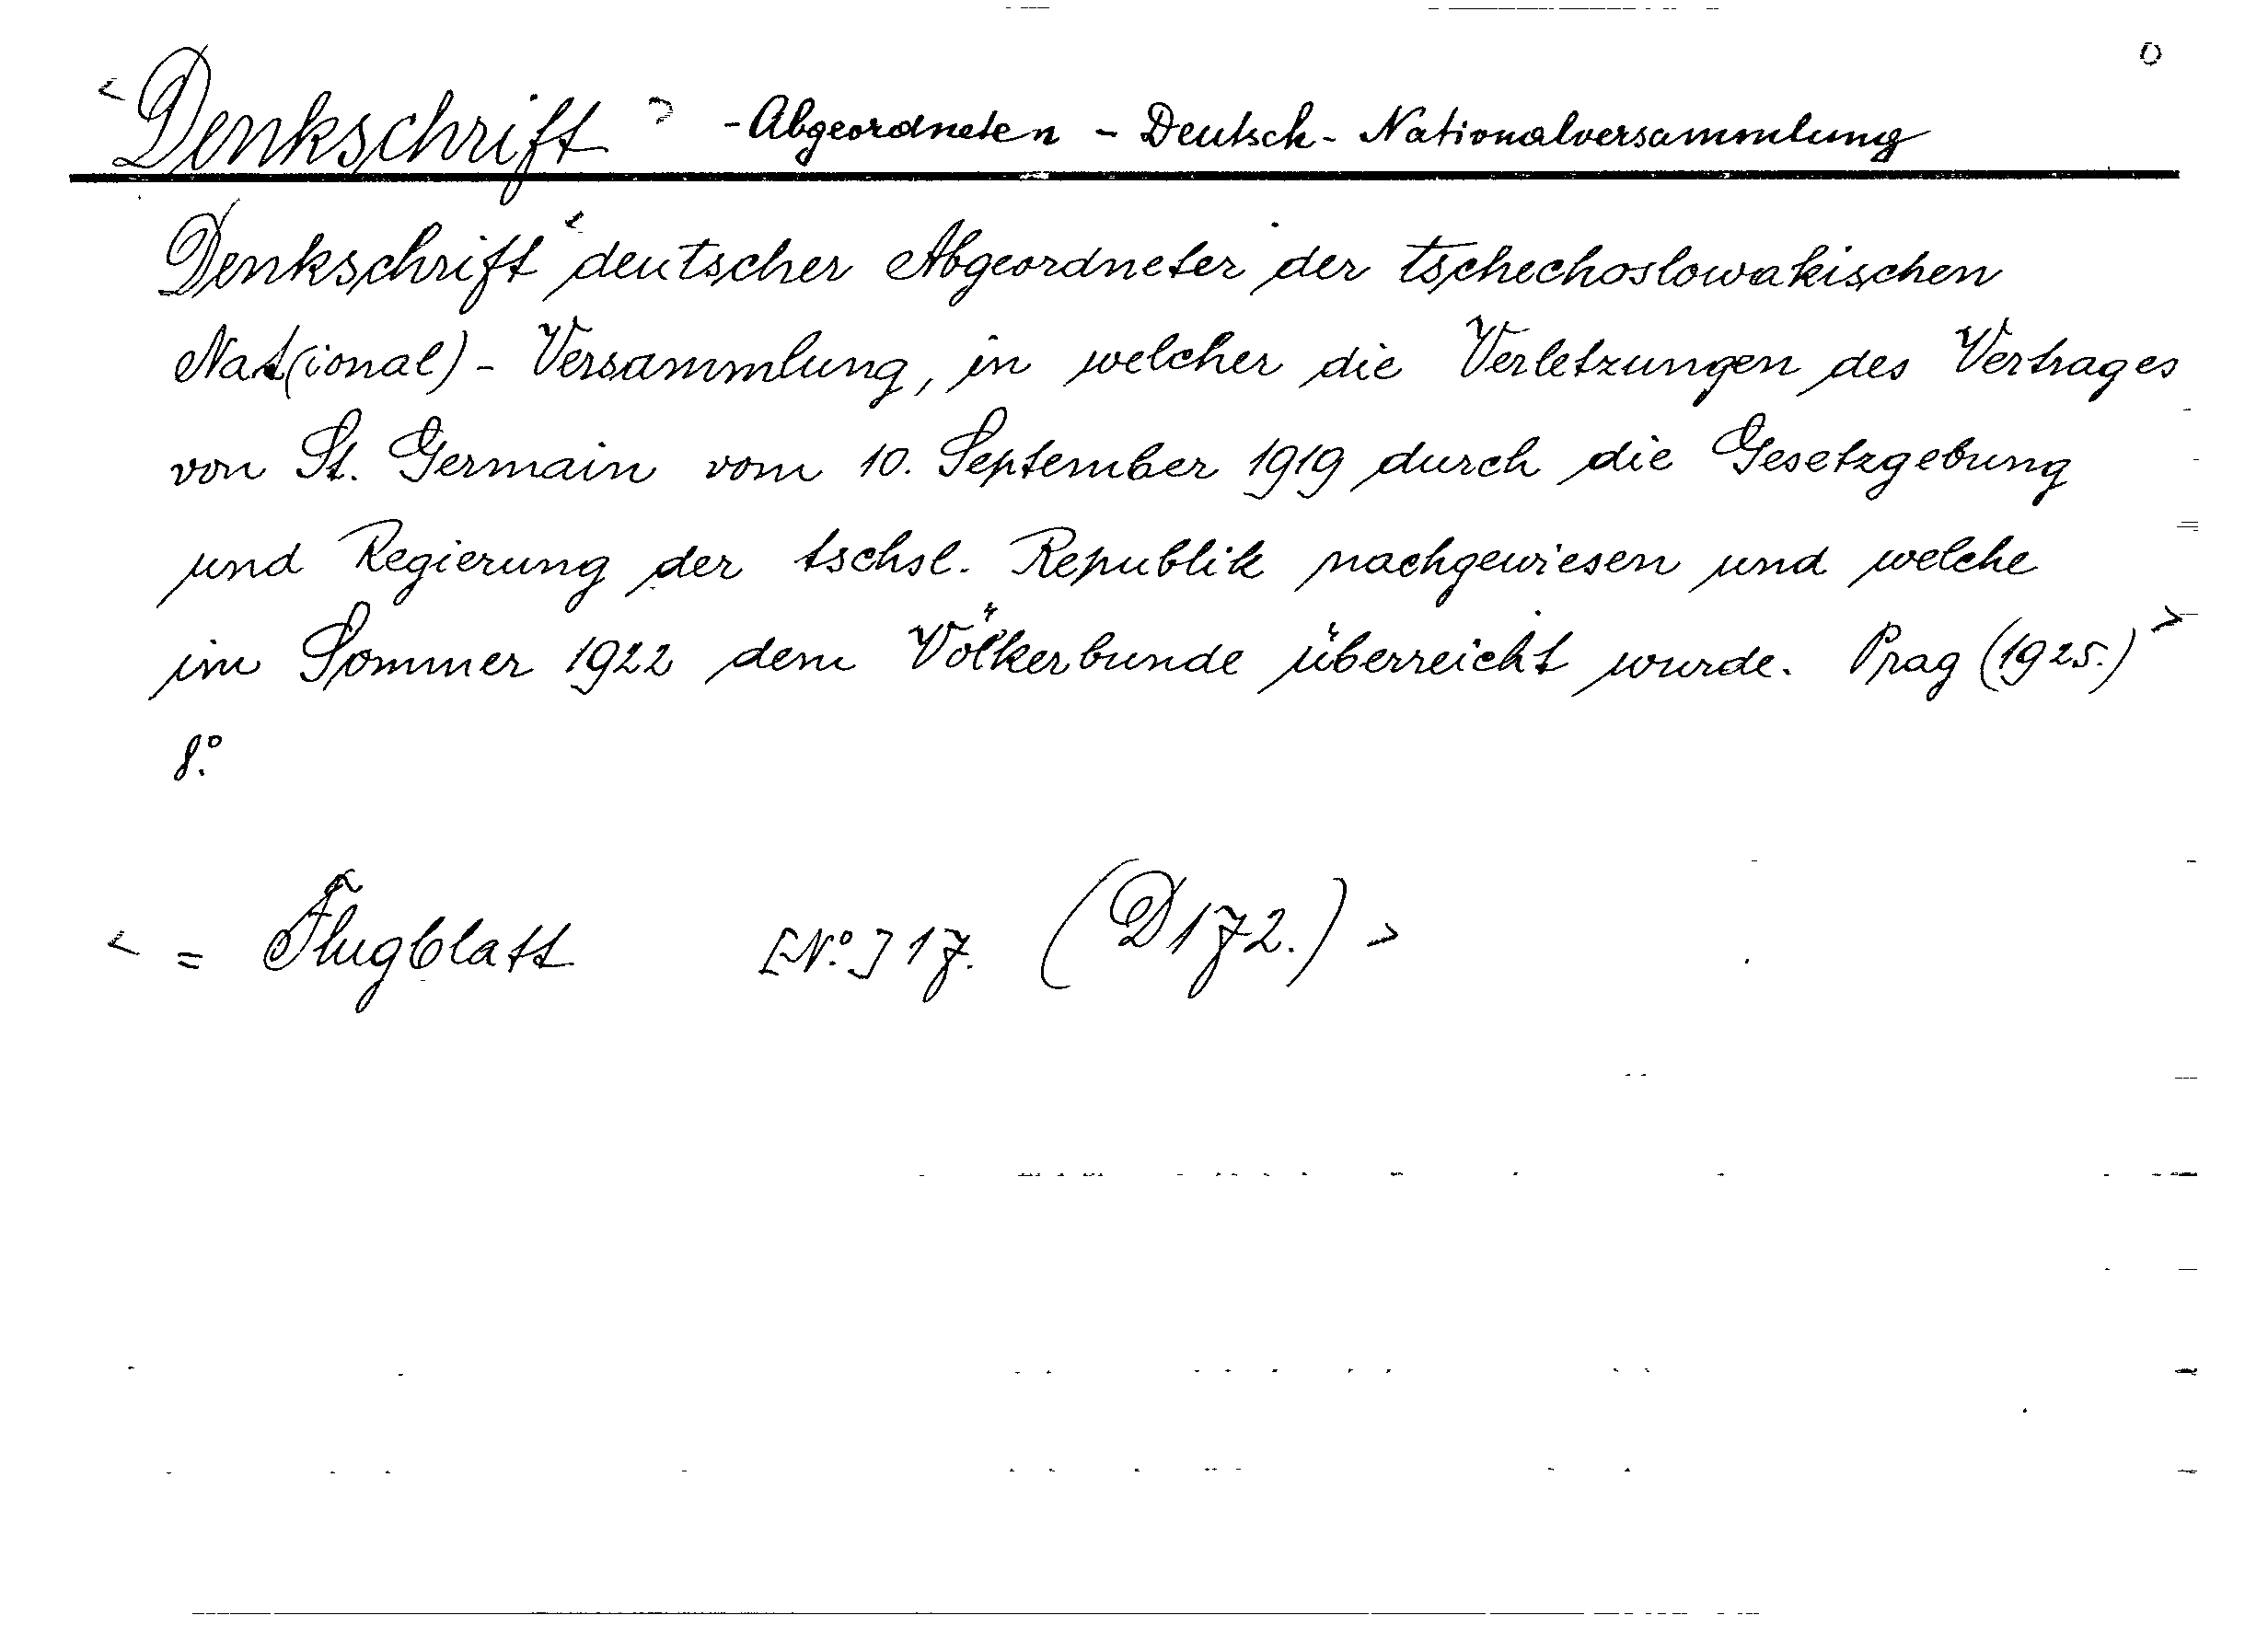 <Denkschrift> - Abgeordneten - Deutsch - Nationalversammlung
Denkschrift <deutscher Abgeordneter der tschechoslowakischen
Nat(ional) - Versammlung, in welcher die Verletzungen des Vertrages
von St. Germain vom 10. September 1919 durch die Gesetzgebung
und Regierung der tschsl. Republik nachgewiesen und welche
im Sommer 1922 dem Völkerbunde überreicht wurde. Prag (1925.)>
8.°
< = Flugblatt [N.°] 17. (D 172.) >